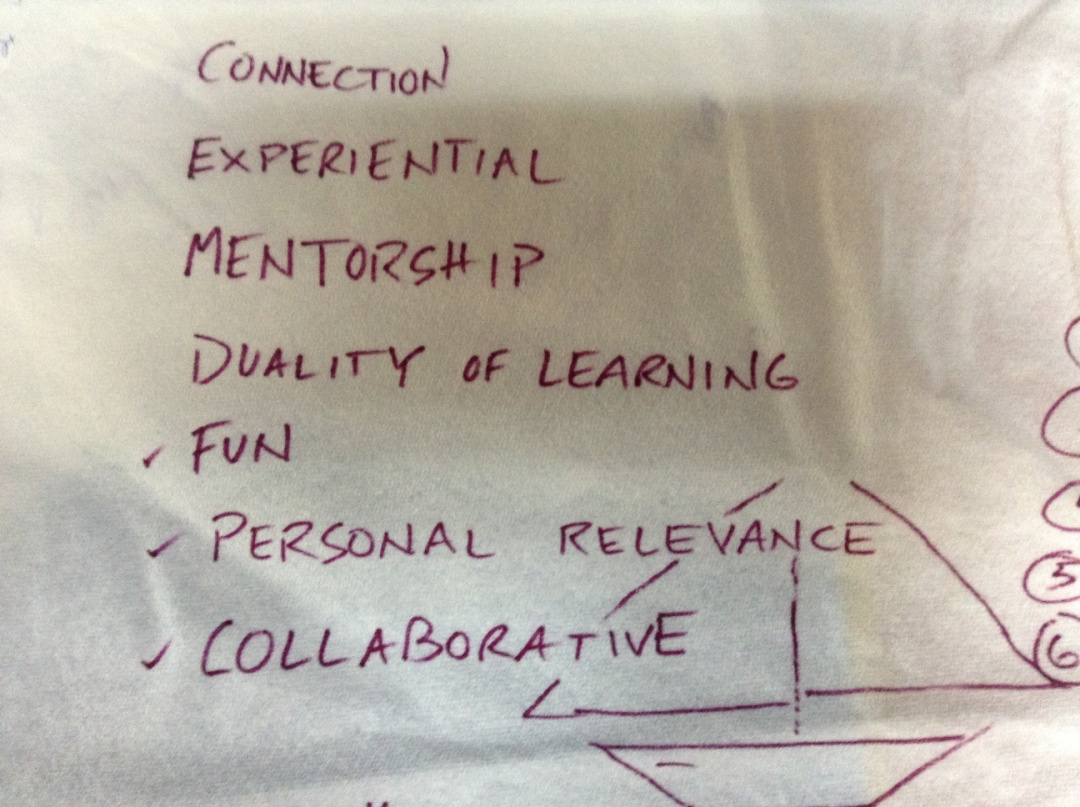 CONNECTION
EXPERIENTIAL
MENTORSHIP
DUALITY OF LEARNING
✓ FUN
✓ PERSONAL RELEVANCE
✓ COLLABORATIVE
5
6